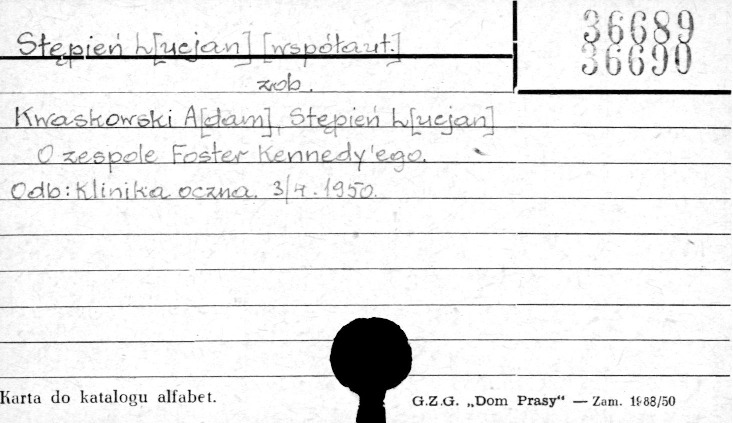 Stępień L[ucjan] [współaut.]
36689
36690
zob.
Kwaskowski A[dam], Stępień L[ucjan]
O zespole Foster Kennedy'ego.
Odb: Klinika oczna. 3/4. 1950.
Karta do katalogu alfabet.
G.Z.G. „Dom Prasy“ — Zam. 1988/50